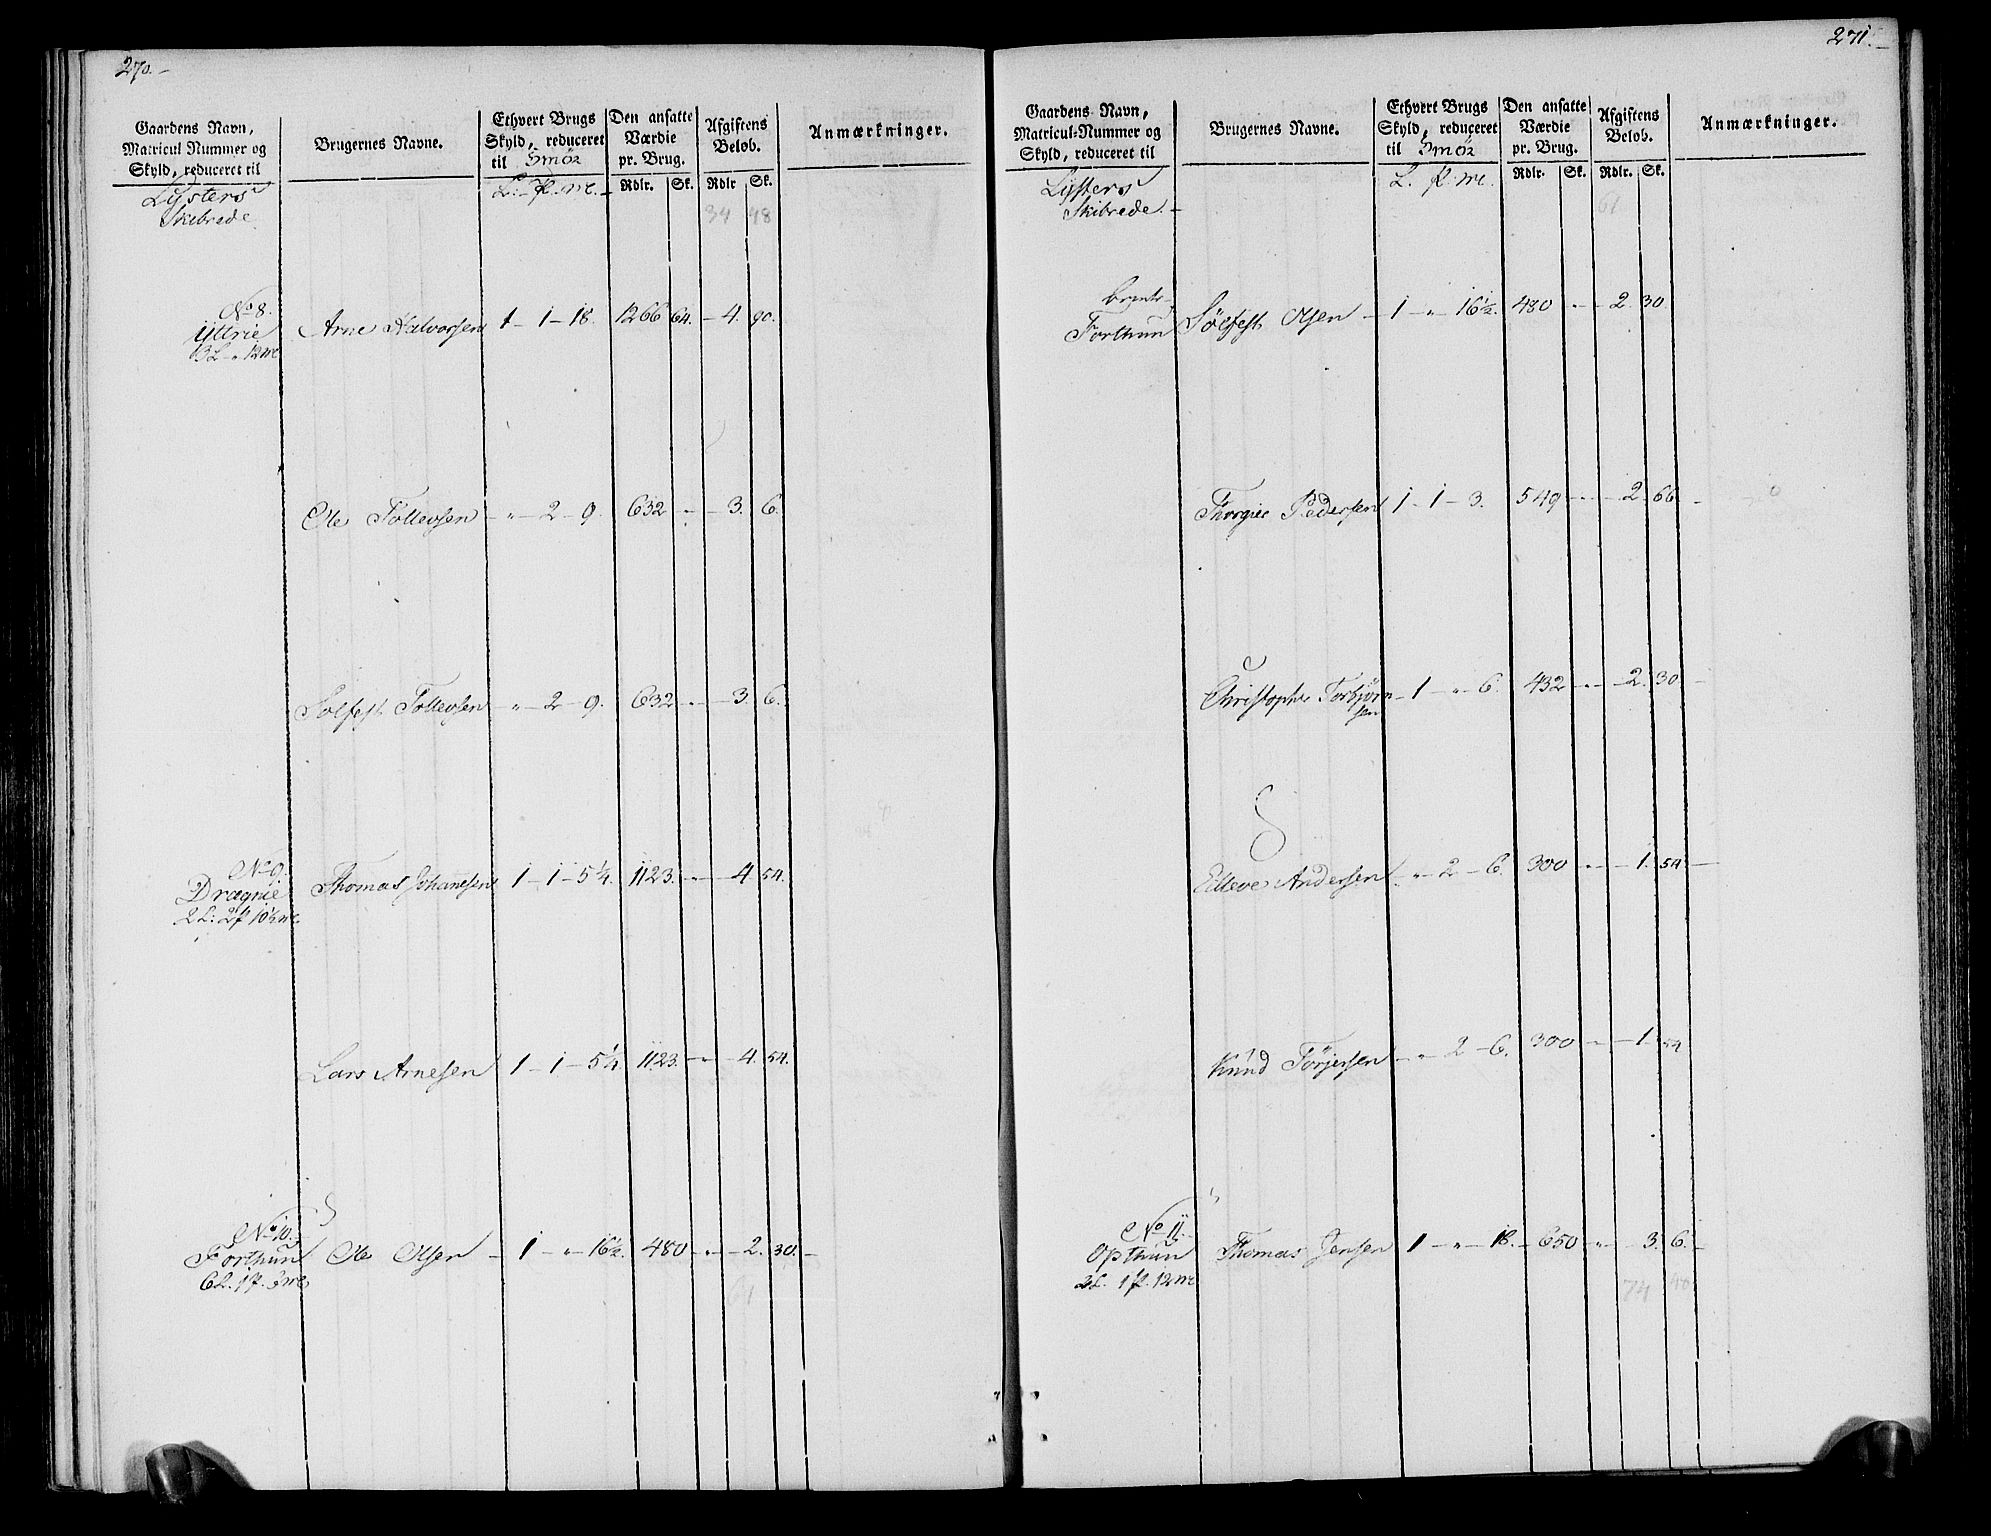 270.
Gaardens Navn, Matricul Nummer og Skyld, reduceret til
Brugernes Navne.
Ethvert Brugs Skyld, reduceret til Smör
Den ansatte Værdie pr. Brug.
Afgiftens Beløb.
Anmærkninger.
L. - p. mr. Rdlr. Sk. Rdlr Sk.
Lysters
Skibrede
34 48
No 8.
Yttrie Arne Halvorsen 1 - 1 - 18. 1266 64. - 4. 90.
3 L - " 12 mr
Ole Tollevsen - " - 2 - 9. 632 " - 3. 6.
Solfest Tollevsen " - 2 - 9. 632 - " - 3. 6.
No 9.
Drægnie Thomas Johanesen 1 - 1 - 5 1/4. 1123. - " - 4 54.
2 L: 2 p 10 1/2 mr.
Lars Arnesen 1 - 1 - 5 1/4 1123. - " - 4. 54.
No 10.
Forthun Ole Olsen - 1 - " - 16 1/2. 480 - " - 2. 30. -
6 L. 1 p. 3 mr
61
271.
Gaardens Navn, Matricul-Nummer og Skyld, reduceret til
Brugernes Navne.
Ethvert Brugs Skyld, reduceret til Smör
Den ansatte Værdie pr. Brug.
Afgiftens Beløb.
Anmærkninger.
L. p. mr. Rdlr. Sk. Rdlr. Sk.
Lysters
Skibrede. -
61
Forthun Sölfest Olsen - 1 - " - 16 1/2. 480 - " - 2. 30
Thorgier Pedersen 1 - 1 - 3. 549 - " - 2. 66 -
Christopher Torbjörn 1 - " - 6. 432 - " - 2. 30. -
sen
Elleve Andersen - " - 2 - 6. 300 - " - 1. 54. -
Knud Törjersen - " - 2 - 6. 300 - " - 1. 54
No 11.
Opthun Thomas Jensen 1 - " - 18. 650 " - 3. 6. -
2 L. 1 p. 12 mr
74 40